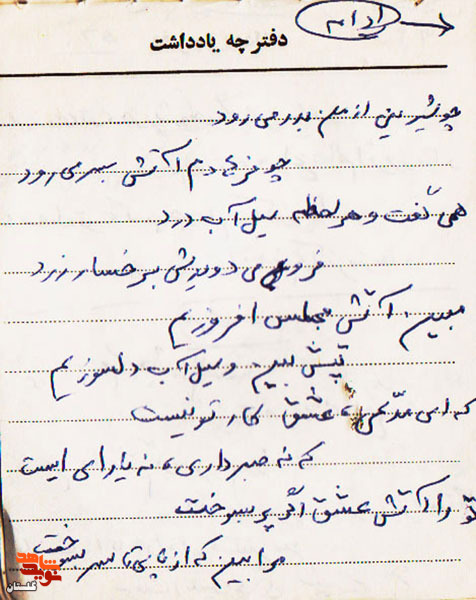 ادامه
دفترچه یادداشت
چو شیرینی از من بدر می رود
چو فرهادم آتش بسر می رود
همی گفت و هر لحظه سیل آب درد
فرو می دویدش بر خسار زرد
مبین آتش مجلس افروزیم
تپش بین و سیل آب دلسوزیم
که ای مدّعی، عشق کار تو نیست
که نه صبر داری، نه یارای ایست
تو را آتش عشق اگر پر سوخت
مرا بین که از پای تا سر سوخت
نوید شاهد
گلستان